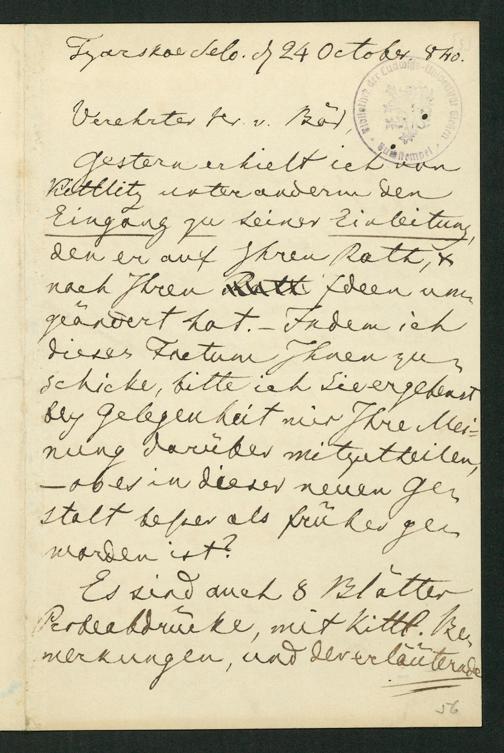 Tzarskoe Selo. d. 24 October 840.
Verehrter Hr. v. Bär,
Gestern erhielt ich von
Kittlitz unter anderm den
Eingang zu seiner Einleitung,
den er auf Ihren Rath, &
nach Ihren Ideen um-
geändert hat. – Indem ich
dieses Factum Ihnen zu-
schicke, bitte ich Sie ergebenst
bey Gelegenheit mir Ihre Mei-
nung darüber mitzutheilen,
– ob es in dieser neuen Ge-
stalt besser als früher ge-
worden ist?
Es sind auch 8 Blätter
Probeabdrücke, mit Kittl. Be-
merkungen, und der erläuternde
56